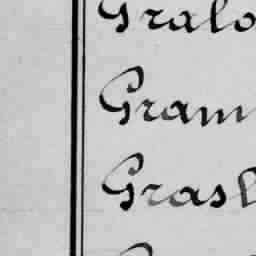 Gralo
Gram
Grash